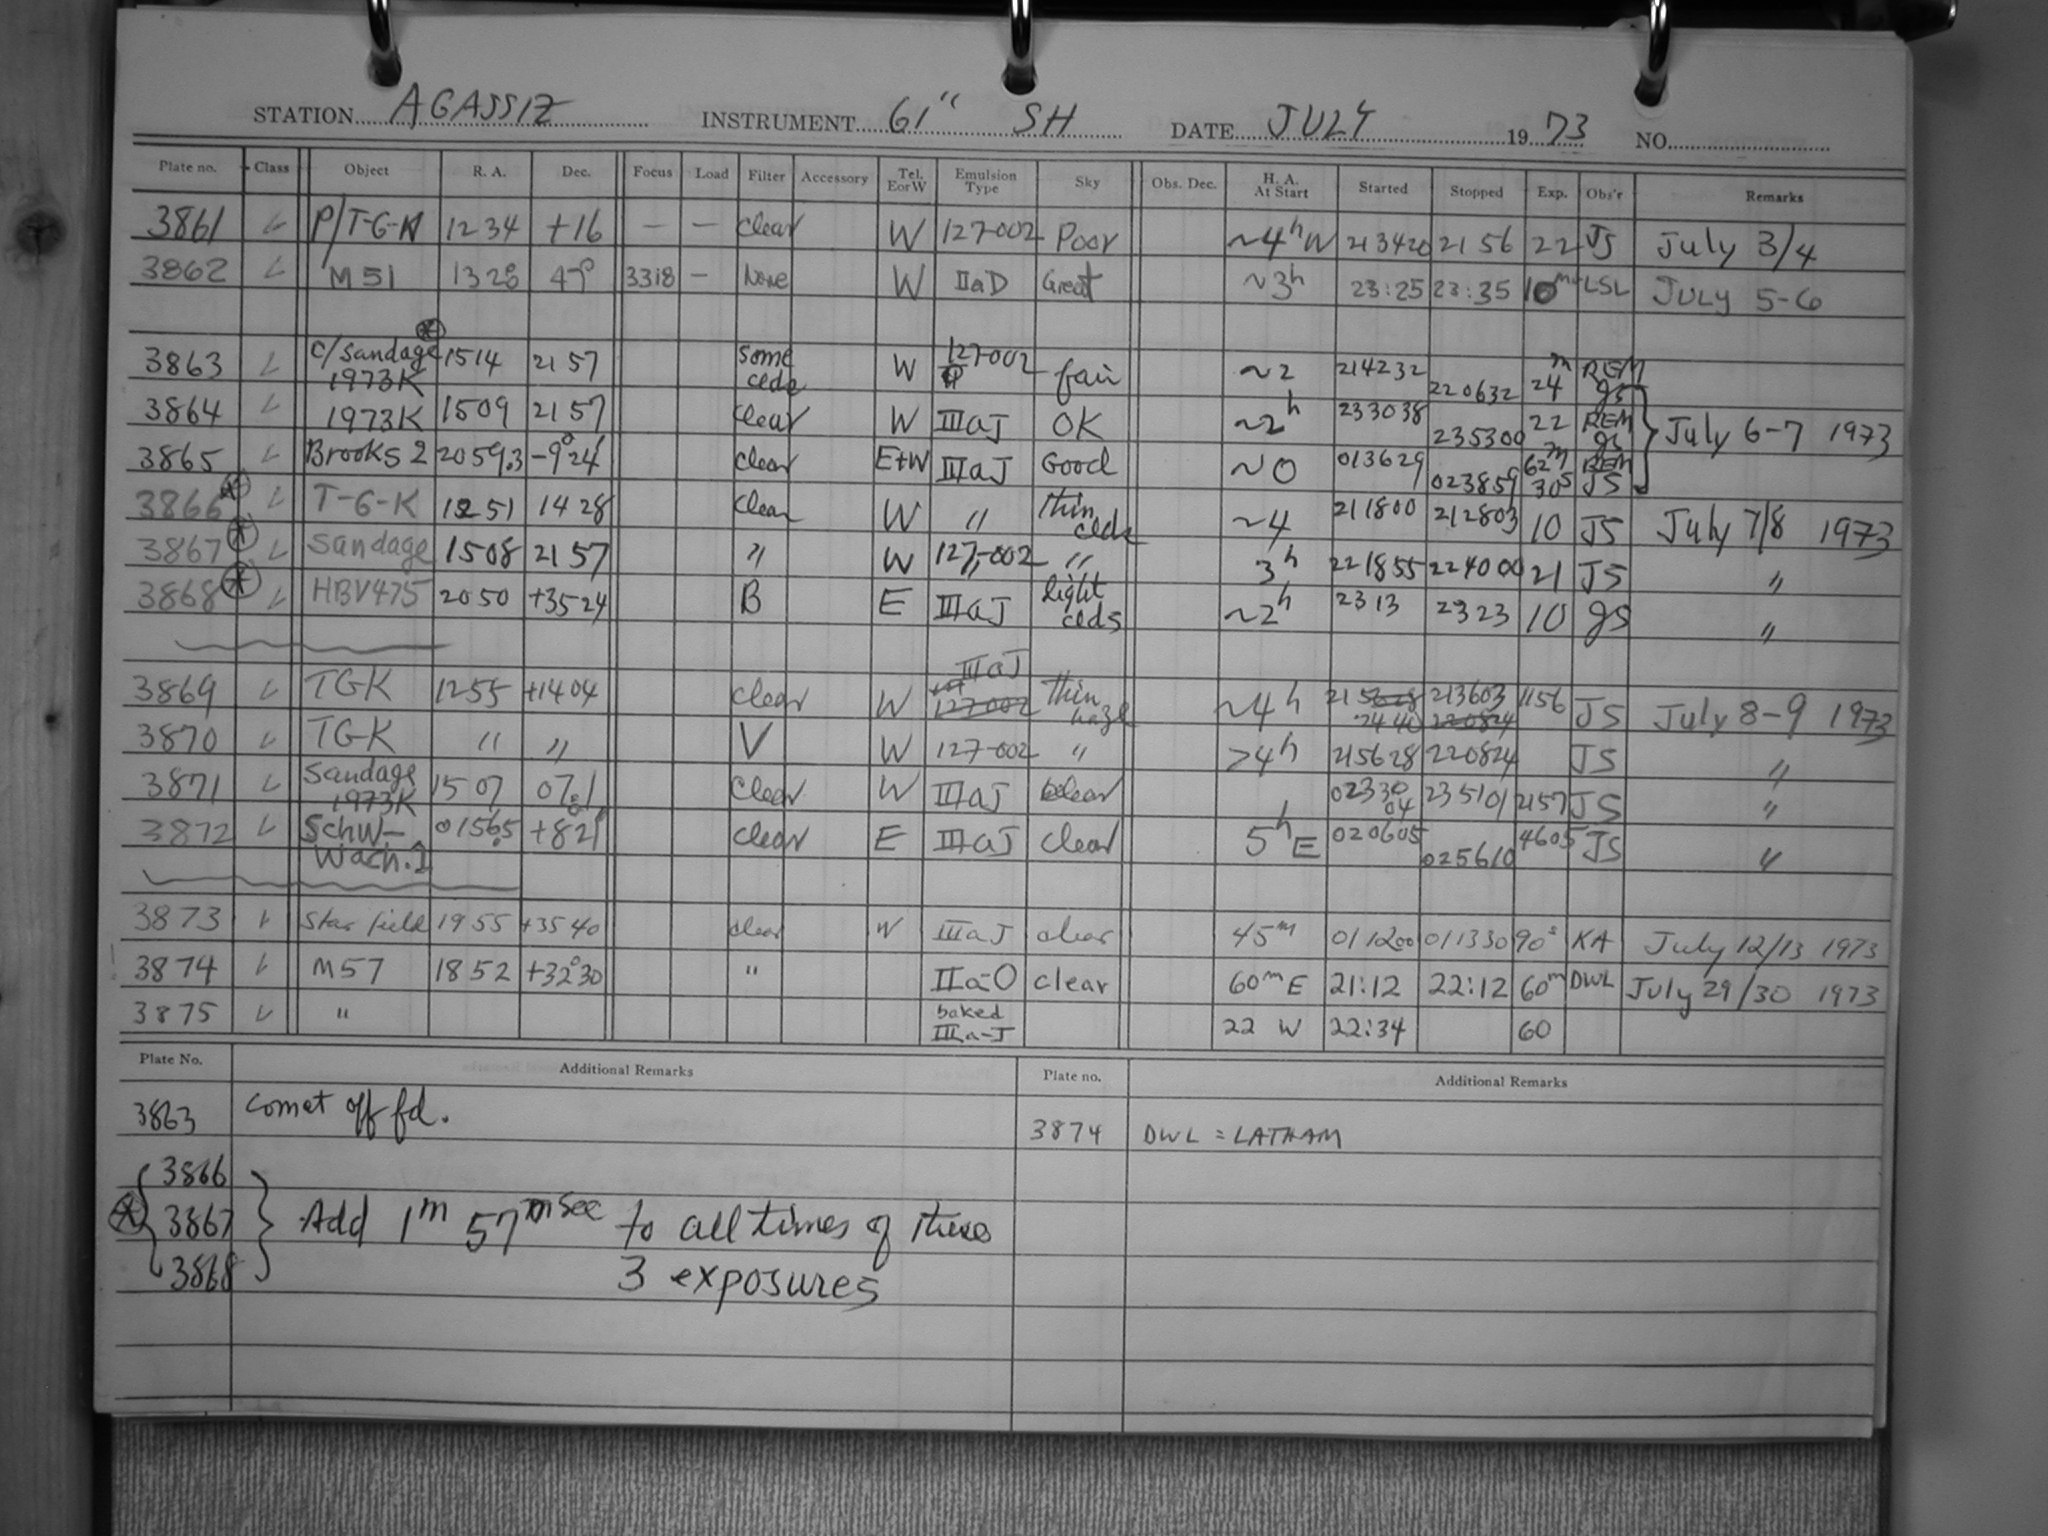 STATION AGASSIZ INSTRUMENT 61" SH DATE JULY 1973 NO.
Plate no. Class Object R. A. Dec. Focus Load Filter Accessory Tel. E or W Emulsion Type Sky Obs. Dec. H. A. At Start Started Stopped Exp. Obs'r Remarks
3861 P/T-G-K 1234 +16 — — clear W 127-002 Poor ~4h W 213420 2156 22 JS July 3/4
3862 M51 1328 47° 3318 — None W IIaD Great ~3h 23:25 23:35 10m LSL JULY 5-6
3863 c/Sandage 1973K 1514 2157 some clds W 127-002 fair ~2 214232 220632 24m REM JS
3864 1973K 1509 2157 clear W IIIaJ OK ~2h 233038 235300 22 REM JS July 6-7 1973
3865 Brooks 2 2059.3 -9°24' clear E+W IIIaJ Good ~0 013629 023859 62m 30s REM JS
3866 T-G-K 1251 1428 clear W " thin clds ~4 211800 212803 10 JS July 7/8 1973
3867 Sandage 1508 2157 " W 127-002 " 3h 221855 224000 21 JS "
3868 HBV475 2050 +3524 B E IIIaJ light clds ~2h 2313 2323 10 JS "
3869 TGK 1255 +1404 clear W IIIaJ 127-002 thin haze ~4h 215628 2440 213603 220824 1156 JS July 8-9 1973
3870 TGK " " V W 127-002 " >4h 215628 220824 JS "
3871 Sandage 1973K 1507 clear W IIIaJ clear 02330 04 235101 2157 JS "
3872 Schw-Wach. 1 01565 +821 clear E IIIaJ clear 5h E 020605 025610 4605 JS "
3873 Star field 1955 +3540 clear W IIIaJ clear 45m 011200 011330 90s KA July 12/13 1973
3874 M57 1852 +32°30 " IIa-O clear 60m E 21:12 22:12 60m DWL July 29/30 1973
3875 " baked IIIa-J 22 W 22:34 60
Plate No. Additional Remarks Plate no. Additional Remarks
3863 comet off fd.
3874 DWL = LATHAM
3866
3867 Add 1m 57 sec to all times of these
3868 3 exposures